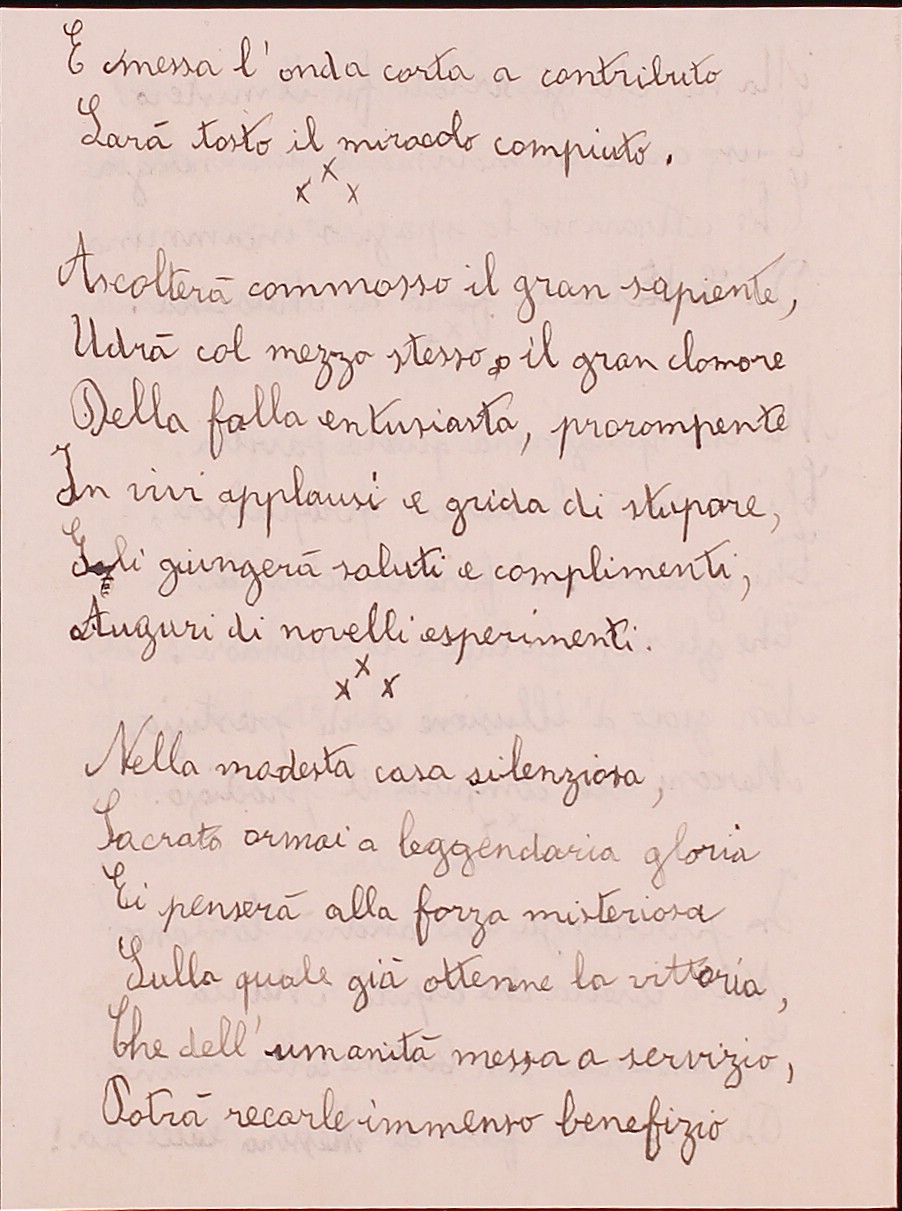 E messa l'onda corta a contributo
Sarà tosto il miracolo compiuto.
x x x
Ascolterà commosso il gran sapiente,
Udrà col mezzo stesso, il gran clamore
Della folla entusiasta, prorompente
In vivi applausi e grida di stupore,
Gli giungerà saluti e complimenti,
Auguri di novelli esperimenti.
x x x
Nella modesta casa silenziosa,
Sacrata ormai a leggendaria gloria
Ei penserà alla forza misteriosa
Sulla quale già ottenne la vittoria,
Che dell'umanità messa a servizio,
Potrà recarle immenso benefizio